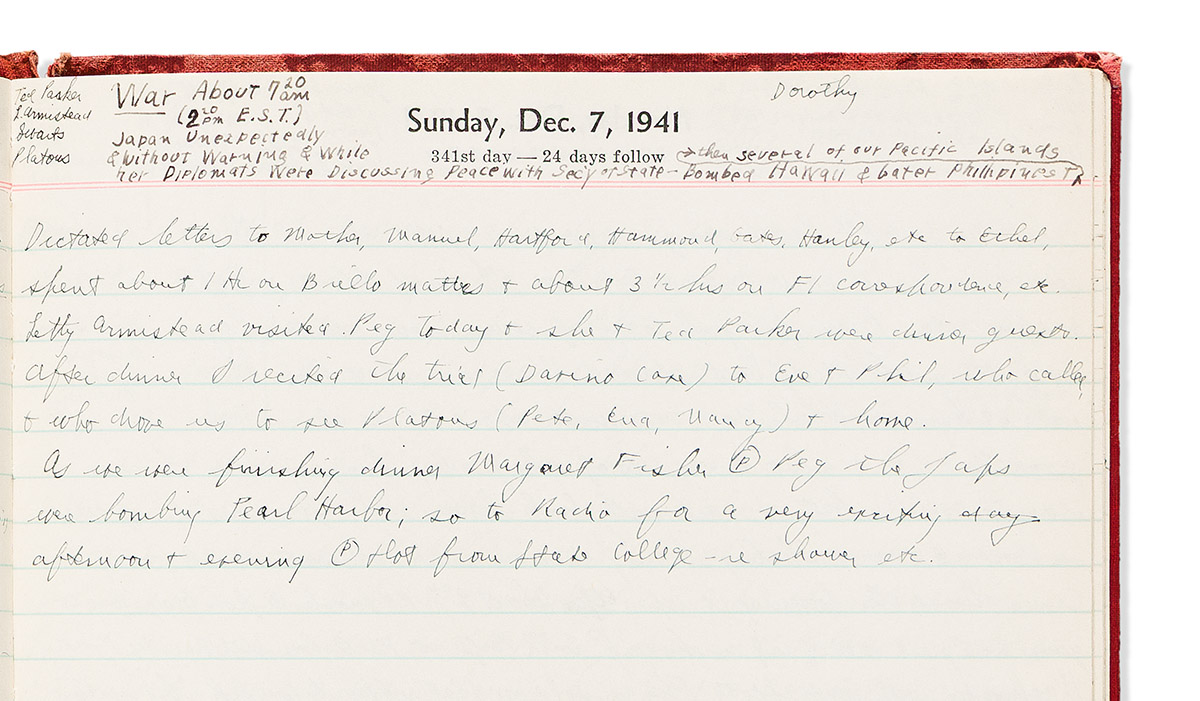 Ted Parker
L. Armistead
Platous
War About 7 20 am
(2 20 pm E.S.T.)
Japan Unexpectedly
& Without Warning & While
her Diplomats Were Discussing Peace with Sec'y of State - Bombed Hawaii & Later Phillipines
then several of our Pacific Islands
Dorothy
Sunday, Dec. 7, 1941
341st day — 24 days follow
Dictated letters to Mother, Manuel, Hartford, Hammond, Gates, Hanley, etc to Ethel,
spent about 1 Hr on Brillo matters + about 3 1/2 hrs on FI correspondence, etc.
Letty Armistead visited Peg today + she + Ted Parker were dinner guests.
After dinner I recited the trial (Darino Case) to Eve + Phil, who called,
+ who drove us to see Platous (Pete, Ena, Nancy) + home.
As we were finishing dinner Margaret Fisher (P) Peg the Japs
were bombing Pearl Harbor; so to Radio for a very exciting day
afternoon + evening (P) + Hot from State College - re shower etc.